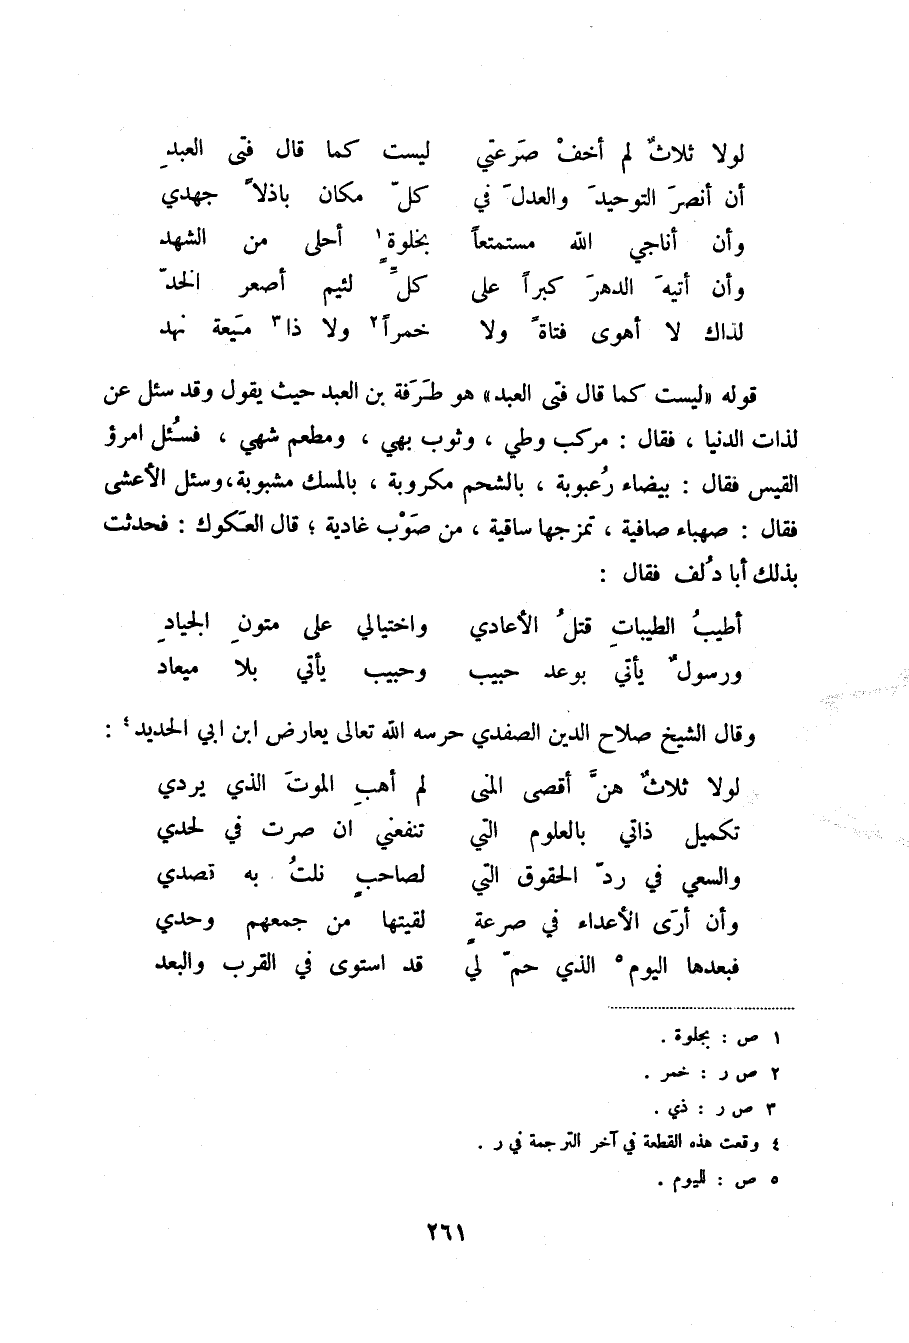 لولا ثلاثٌ لم أخفْ صَرعتي ليست كما قال فتى العبدِ
أن أنصرَ التوحيدَ والعدلَ في كلّ مكان باذلاً جهدي
وأن أناجي الله مستمتعاً بخلوةٍ١ أحلى من الشهد
وأن أتيهَ الدهرَ كبراً على كلِّ لئيم أصعر الخدّ
لذاك لا أهوى فتاةً ولا خمراً٢ ولا ذا٣ ميَعة نهد
قوله «ليست كما قال فتى العبد» هو طَرَفة بن العبد حيث يقول وقد سئل عن
لذات الدنيا ، فقال : مركب وطي ، وثوب بهي ، ومطعم شهي ، فسُئل امرؤ
القيس فقال : بيضاء رُعبوبة ، بالشحم مكروبة ، بالمسك مشبوبة،وسئل الأعشى
فقال : صهباء صافية ، تمزجها ساقية ، من صَوْب غادية ؛ قال العَكوك : فحدثت
بذلك أبا دُلف فقال :
أطيبُ الطيباتِ قتلُ الأعادي واختيالي على متونِ الجيادِ
ورسولٌ يأتي بوعد حبيب وحبيب يأتي بلا ميعاد
وقال الشيخ صلاح الدين الصفدي حرسه الله تعالى يعارض ابن ابي الحديد٤ :
لولا ثلاثٌ هنَّ أقصى المنى لم أهبِ الموتَ الذي يردي
تكميل ذاتي بالعلوم التي تنفعني ان صرت في لحدي
والسعي في ردّ الحقوق التي لصاحبٍ نلتُ به قصدي
وأن أرَى الأعداء في صرعةٍ لقيتها من جمعهم وحدي
فبعدها اليوم٥ الذي حمّ لي قد استوى في القرب والبعد
١ ص : بجلوة .
٢ ص ر : خمر .
٣ ص ر : ذي .
٤ وقعت هذه القطعة في آخر الترجمة في ر .
٥ ص : لليوم .
٢٦١